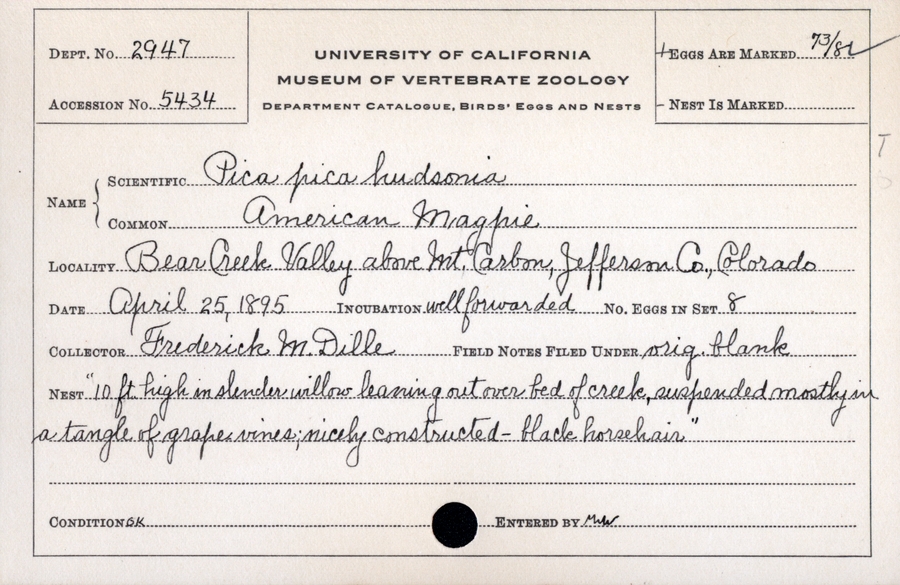 DEPT. NO. 2947
ACCESSION NO. 5434
UNIVERSITY OF CALIFORNIA
MUSEUM OF VERTEBRATE ZOOLOGY
DEPARTMENT CATALOGUE, BIRDS' EGGS AND NESTS
+EGGS ARE MARKED 73/8
- NEST IS MARKED
T
NAME
SCIENTIFIC Pica pica hudsonia
COMMON American Magpie
LOCALITY Bear Creek Valley above Mt. Carbon, Jefferson Co., Colorado
DATE April 25, 1895 INCUBATION well forwarded NO. EGGS IN SET 8
COLLECTOR Frederick M. Dille FIELD NOTES FILED UNDER orig. blank
NEST "10 ft. high in slender willow leaning out over bed of creek, suspended mostly in
a tangle of grape vines; nicely constructed - black horsehair"
CONDITION OK ENTERED BY